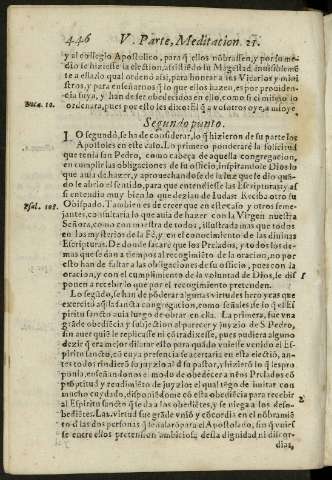 446 V. Parte, Meditacion. 21.
y al collegio Apostolico, para q̃ ellos nõbrassen, y por su me-
dio se hiziesse la election, assistiẽdo su Magestad, inuisiblemẽ
te a ella: lo qual ordenò assi, para honrar a sus Vicarios y mini
stros, y para enseñarnos q̃ lo que ellos hazen, es por prouiden-
cia suya, y han de ser obedecidos en ello, como si el mismo lo
Luca. 10. ordenara, pues por esto les dixo: El q̃ a vosotros oye, a mi oye.
Segundo punto.
LO segundo, se ha de considerar, lo q̃ hizieron de su parte los
Apostoles en este caso. Lo primero ponderarè la solicitud
que tenia san Pedro, como cabeça de aquella congregacion,
en cumplir las obligaciones de su officio, inspirandole Dios lo
que auia de hazer, y aprouechandose de la luz que se dio quã-
do le abrio el sentido, para que entendiesse las Escripturas: y assi
entendio muy bien lo que dezia de Iudas: Reciba otro su
Psal. 108. Obispado. Tambien es de creer que en este caso y otros seme-
jantes, consultaria lo que auia de hazer con la Virgen nuestra
Señora, como con maestra de todos, illustrada mas que todos
en los mysterios de la Fè, y en el conocimiento de las diuinas
Escripturas. De donde sacarè que los Prelados, y todos los de-
mas que se dan a tiempos al recogimiẽto de la oracion, no por
esto han de faltar a las obligaciones de su officio, pues con la
oracion, y con el cumplimiento de la voluntad de Dios, se dis 1
ponen a recebir lo que por el recogimiento pretenden.
Lo segũdo, se han de põderar algunas virtudes heroycas que
exercitò aq̃lla sancta congregacion, como señales de lo q̃ el Es
piritu sancto auia luego de obrar en ella. La primera, fue vna
grãde obediẽcia y subjectiõ al parecer y juyzio de S. Pedro,
sin auer quiẽ le replicasse ni cõtradixesse, pues pudiera alguno
dezir q̃ era mejor dilatar esto para quãdo viniesse venido el Es-
piritu sancto, cõ cuya presencia se acertaria en esta electiõ, an-
tes todos rindierõ su juyzio al de su pastor, y hizierõ lo q̃ les pro
ponia, enseñandonos el modo de obedecer a nr̃os Prelados cõ
prõptitud y rendimiẽto de juyzio: el qual tẽgo de imitar con
mucho cuydado, disponiẽdome cõ esta obediẽcia para recebir
al Espiritu sancto q̃ se da a los obediẽtes, y se niega a los deso-
bediẽtes. La 2. virtud fue grãde vniõ y cõcordia en el nõbramiẽ 2
to d̃ las dos personas q̃ señalarõ para el Apostolado, sin q̃ vuies
se entre ellos pretension ambiciosa dessa dignidad ni discor-
dias,